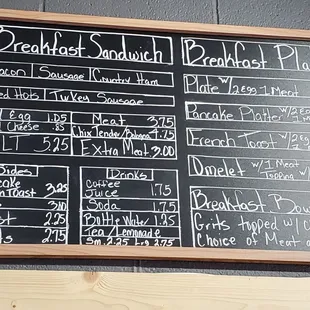 Breakfast Sandwich
acon Sausage Country Ham
ed Hots Turkey Sausage
Egg 1.05
Cheese .85
LT 5.25
Meat 3.75
Chix Tender/Bologna 4.75
Extra Meat 3.00
Sides
cake
n Toast 3.25
3.10
st 2.25
s 2.75
Drinks
Coffee
Juice 1.75
Soda 1.75
Bottle Water 1.25
Tea/Lemonade
Sm 2.25 Lrg 2.75
Breakfast Pla
Plate w/ 2 Egg 1 Meat
Pancake Platter w/ 2 Eg
French Toast w/ 2 E
Omelet w/ 1 Meat
Topping
Breakfast Bow
Grits topped w/ C
Choice of Meat a